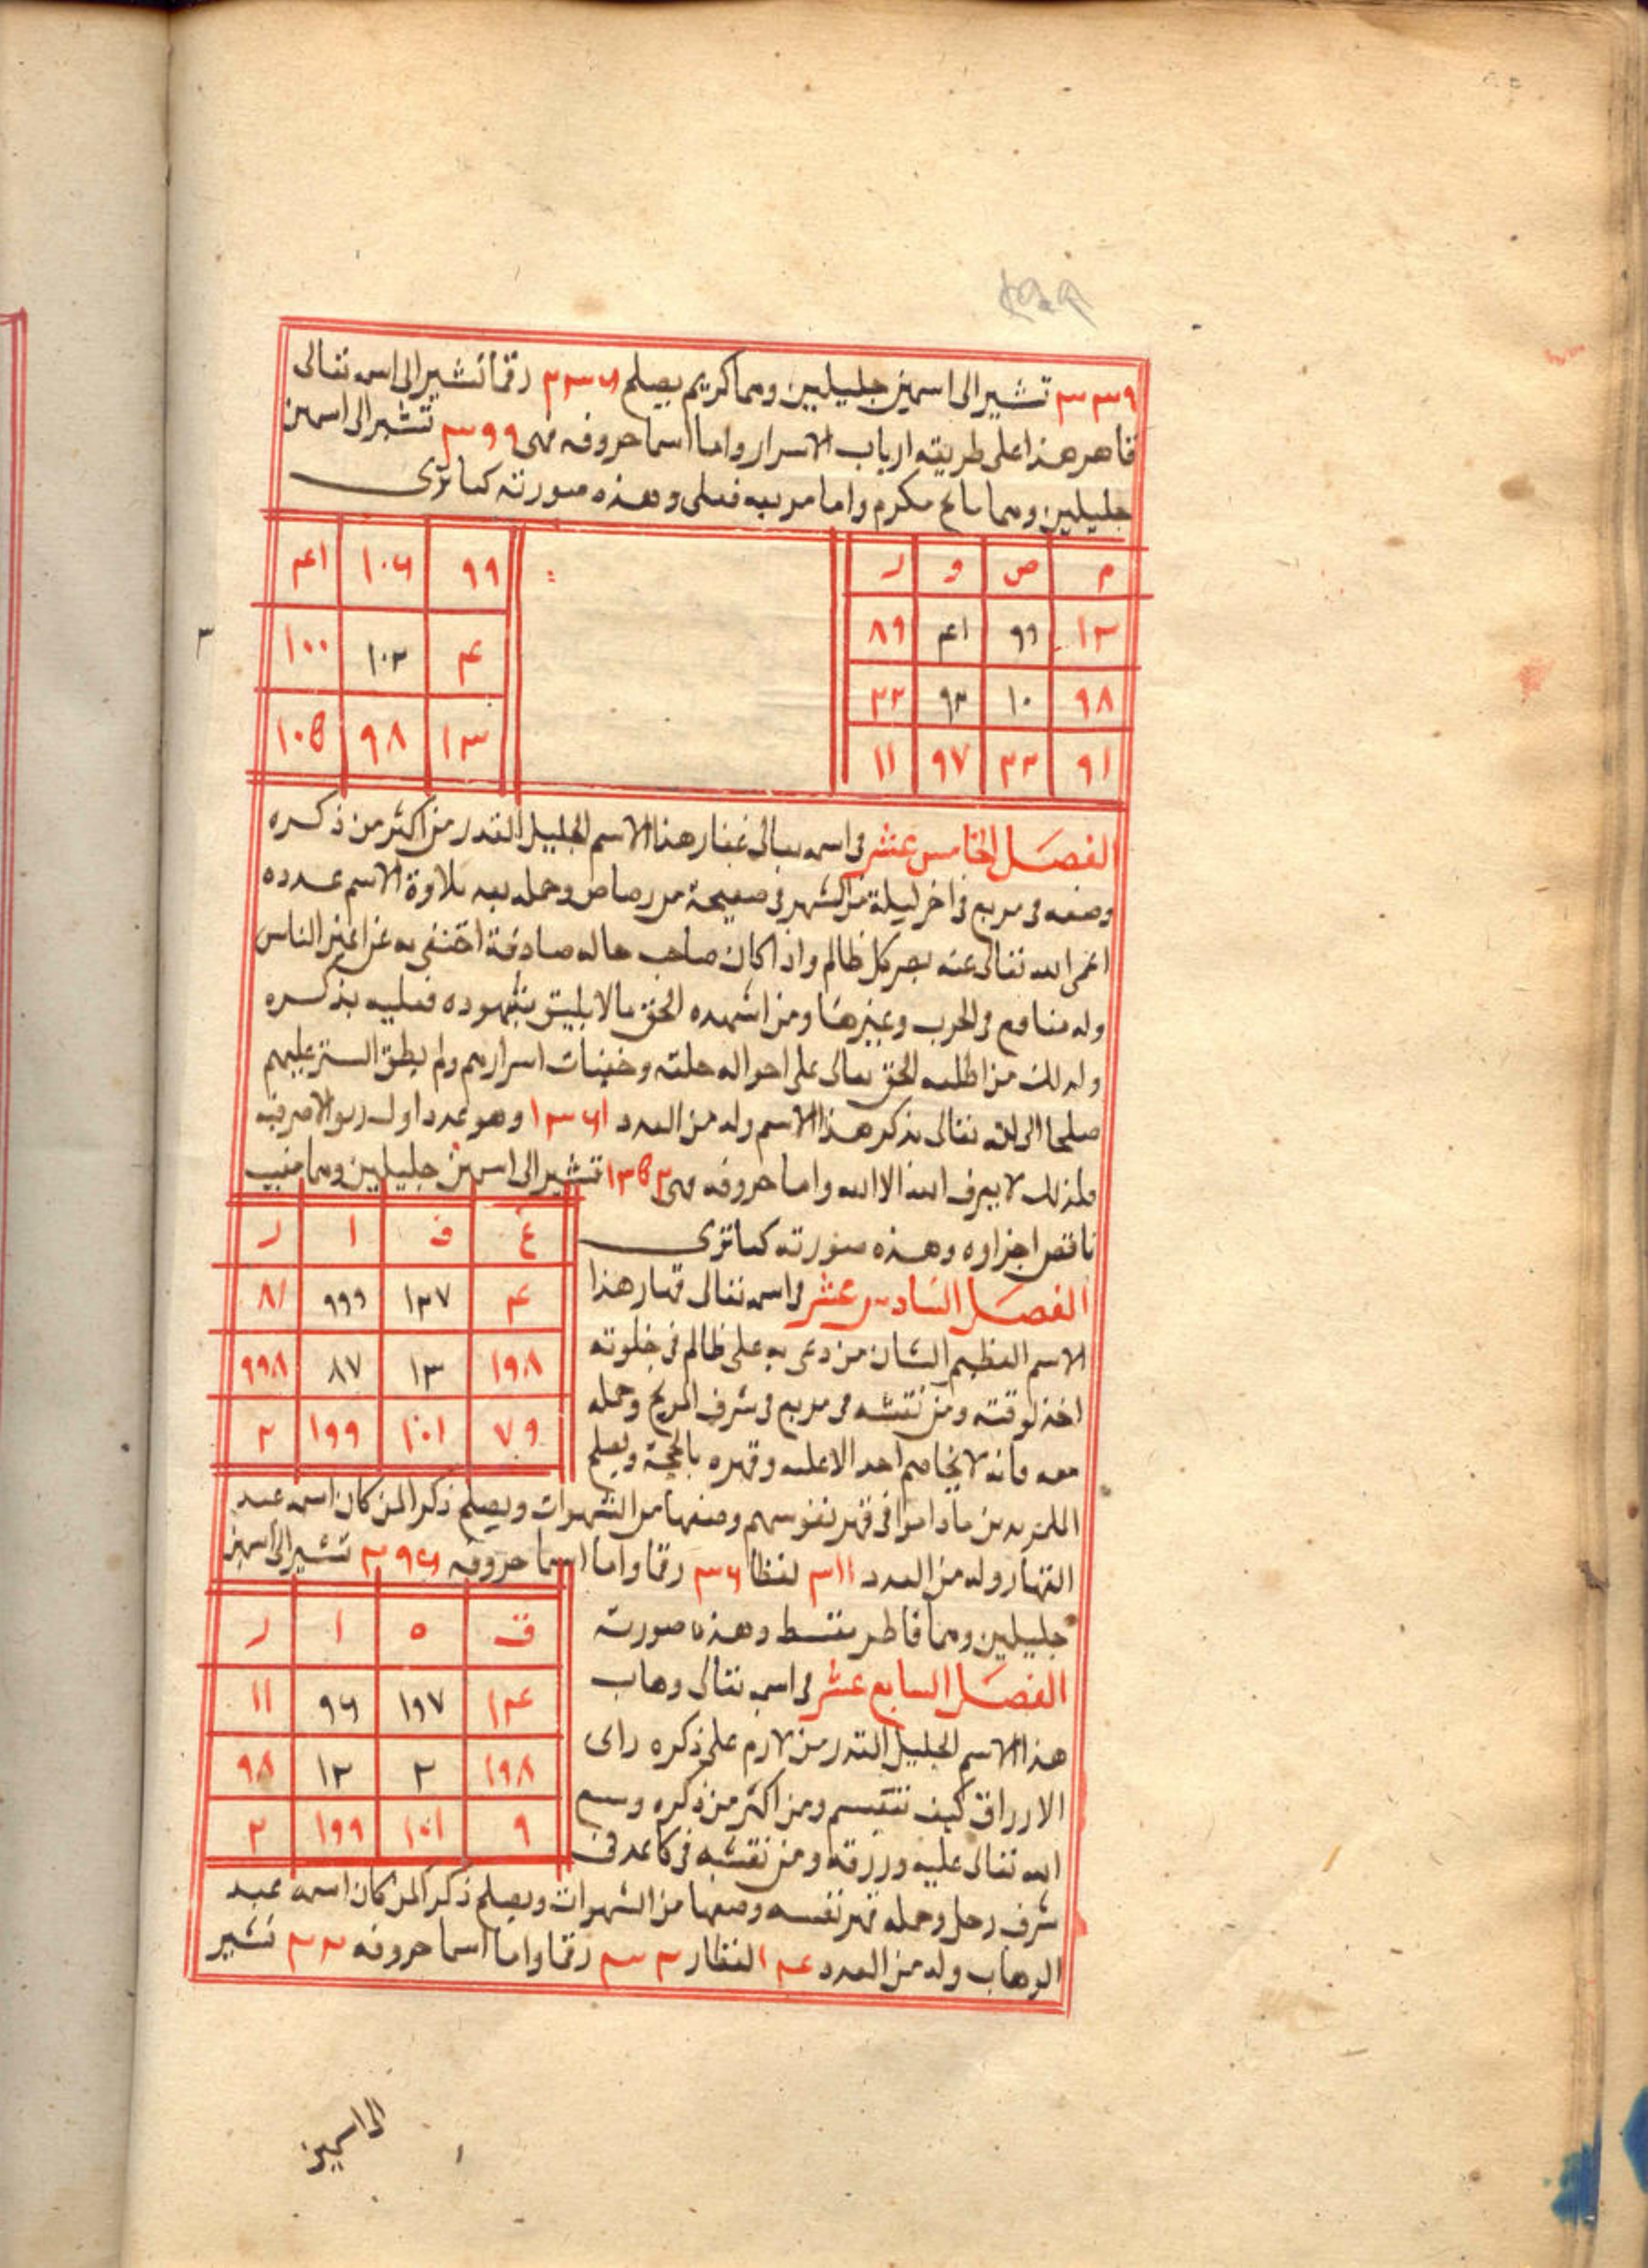 ٣٣٦ تشير الى اسمين جليلين وهما كريم يصلح ٣٣٦ رقما تشير الى اسمه تعالى
قاهر هذا على طريقة ارباب الاسرار واما اسما حروفه فهى ٣٩٩ تشير الى اسمين
جليلين وهما مانح مكرم واما مربعه فعلى وهذه صورته كما ترى
م ص و ر
١٣ ٩٩ ٤١ ٨٩
٩٨ ١٠ ٩٣ ٢٢
٩١ ٣٣ ٩٧ ١١
٩٩ ١٠٦ ٤١
٤ ١٠٢ ١٠٠
١٣ ٩٨ ١٠٥
الفصل الخامس عشر فى اسمه تعالى غفار هذا الاسم الجليل القدر من اكثر من ذكره
وضعه فى مربع فى اخر ليلة من الشهر فى صفيحة من رصاص وحمله بعد تلاوة الاسم عدده
اعمى الله تعالى عنه بصر كل ظالم واذا كان صاحب حاله صادقة اختفى به عن اعين الناس
وله منافع فى الحرب وغيرها ومن اشهده الحق ما لا يليق بشهوده فعليه بذكره
ولذلك من اطلعه الحق تعالى على احواله خلقه وخفيات اسرارهم ولم يطق الستر عليهم
صلحا الى الله تعالى بذكر هذا الاسم وله من العدد ١٣٦١ وهو عدد اول
فلذلك لا يعرف الله الا الله واما حروفه فهى ١٣٥٣ تشير الى اسمين جليلين وهما منيب
ناقص اجزاوه وهذه صورته كما ترى
غ ف ا ر
٤ ١٣٧ ٩٩٩ ٨١
١٩٨ ١٣ ٨٧ ٩٩٨
٧٩ ١٠١ ١٩٩ ٢
الفصل السادس عشر فى اسمه تعالى قهار هذا
الاسم العظيم الشان من دعى به على ظالم فى خلوته
اخذ لوقته ومن نقشه فى مربع فى شرف المريخ وحمله
معه فانه لا يخاصم احد الا غلبه وقهره بالحجة ويصلح
للمريدين ما داموا فى قهر نفوسهم ومنعها من الشهوات ويصلح ذكرا لمن كان اسمه عبد
القهار وله من العدد ٣١١ لفظا ٣٠٦ رقما واما اسما حروفه ٣٩٦ تشير الى اسمين
جليلين وهما فاطر مقسط وهذه صورته
ق ه ا ر
١٣٤ ١٩٧ ٩٦ ١١
١٩٨ ٣ ١٣ ٩٨
٩ ١٠١ ١٩٩ ٢
الفصل السابع عشر فى اسمه تعالى وهاب
هذا الاسم الجليل القدر من لازم على ذكره راى
الارزاق كيف تنقسم ومن اكثر من ذكره وسع
الله تعالى عليه ورزقه ومن نقشه فى كاغد فى
شرف زحل وحمله قهر نفسه ومنعها من الشهوات ويصلح ذكرا لمن كان اسمه عبد
الوهاب وله من العدد ١٤ لفظا ر ٣٣ رقما واما اسما حروفه ٣٣ تشير
الى اسمين